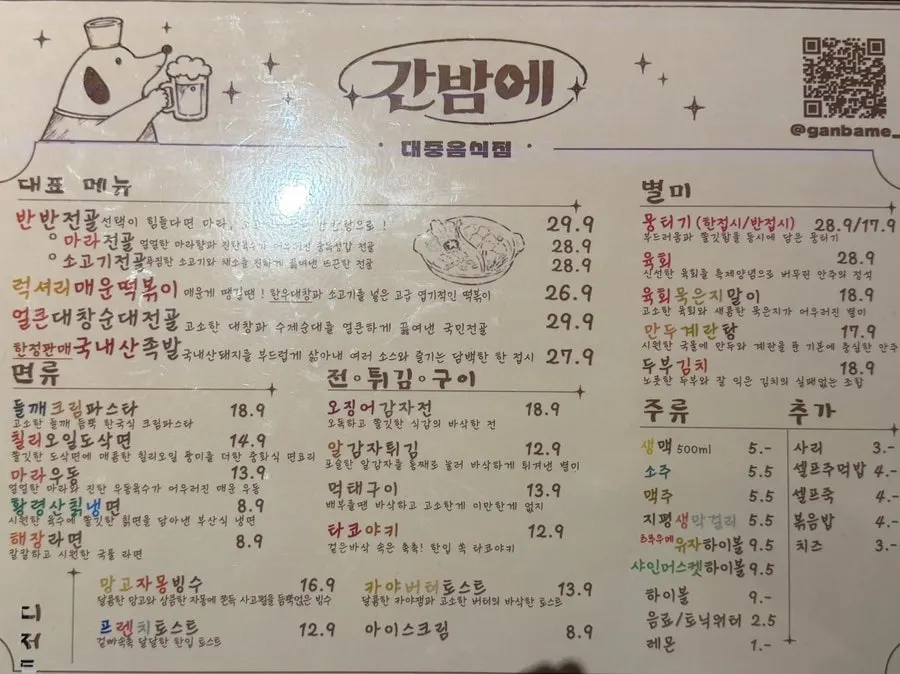 간밤에
대중음식점
@ganbame_
대표 메뉴
반반전골 선택이 힘들다면 마라, 으로! 29.9
마라전골 얼얼한 마라향과 진한육수가 어우러진 전골 28.9
소고기전골 푸짐한 소고기와 채소를 진하게 끓여낸 뜨끈한 전골 28.9
럭셔리매운떡볶이 매운게 땡길땐! 한우대창과 소고기를 넣은 고급 엽기적인 떡볶이 26.9
얼큰대창순대전골 고소한 대창과 수제순대를 얼큰하게 끓여낸 국민전골 29.9
한정판매국내산족발 국내산돼지를 부드럽게 삶아내 여러 소스와 즐기는 담백한 한 접시 27.9
면류
들깨크림파스타 18.9
고소한 들깨 듬뿍 한국식 크림파스타
칠리오일도삭면 14.9
쫄깃한 도삭면에 매콤한 칠리오일 풍미를 더한 중화식 면요리
마라우동 13.9
얼얼한 마라와 진한 우동육수가 어우러진 매운 우동
황령산칡냉면 8.9
시원한 육수에 쫄깃한 칡면을 담아낸 부산식 냉면
해장라면 8.9
칼칼하고 시원한 국물 라면
전•튀김•구이
오징어감자전 18.9
오독하고 쫄깃한 식감의 바삭한 전
알감자튀김 12.9
포슬한 알감자를 통째로 눌러 바삭하게 튀겨낸 별미
먹태구이 13.9
배부를땐 바삭하고 고소한게 이만한게 없지
타코야키 12.9
겉은바삭 속은 촉촉! 한입 쏙 타코야키
별미
뭉티기 (한접시/반접시) 28.9/17.9
부드러움과 쫄깃함을 동시에 담은 뭉티기
육회 28.9
신선한 육회를 특제양념으로 버무린 안주의 정석
육회묵은지말이 18.9
고소한 육회와 새콤한 묵은지가 어우러진 별미
만두계란탕 17.9
시원한 국물에 만두와 계란을 푼 기본에 충실한 안주
두부김치 18.9
노릇한 두부와 잘 익은 김치의 실패없는 조합
주류
생맥 500ml 5.-
소주 5.5
맥주 5.5
지평생막걸리 5.5
유자하이볼 9.5
샤인머스켓하이볼 9.5
하이볼 9.-
음료/토닉워터 2.5
레몬 1.-
추가
사리 3.-
셀프주먹밥 4.-
셀프죽 4.-
볶음밥 4.-
치즈 3.-
디저트
망고자몽빙수 16.9
달콤한 망고와 상큼한 자몽에 쫀득 사고펄을 듬뿍얹은 빙수
프렌치토스트 12.9
겉빠속촉 달달한 한입 토스트
카야버터토스트 13.9
달콤한 카야잼과 고소한 버터의 바삭한 토스트
아이스크림 8.9